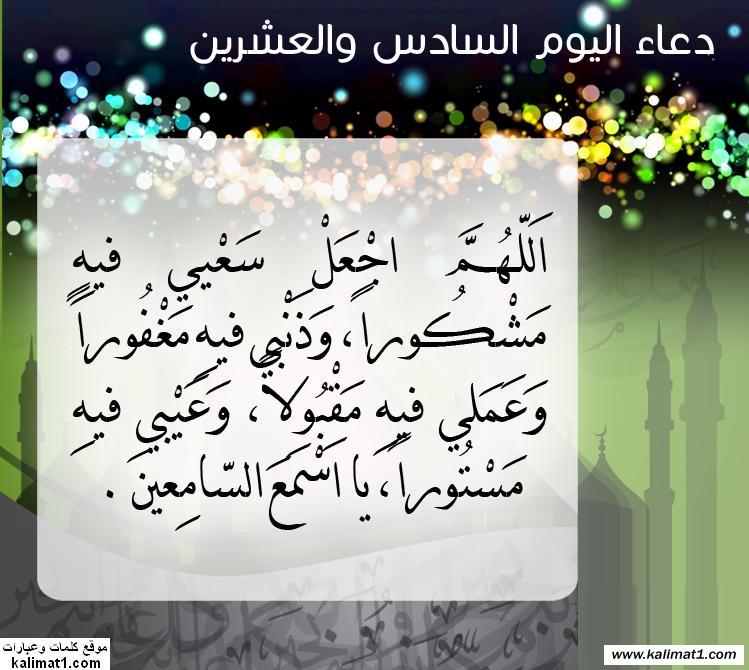 دعاء اليوم السادس والعشرين
اَللّهُمَّ اجْعَلْ سَعْيي فيهِ
مَشْكُوراً، وَذَنْبي فيهِ مَغْفُوراً
وَعَمَلي فيهِ مَقْبُولاً، وَعَيْبي فيهِ
مَسْتُوراً، يا اَسْمَعَ السّامِعينَ .
موقع كلمات وعبارات
kalimat1.com
www.kalimat1.com